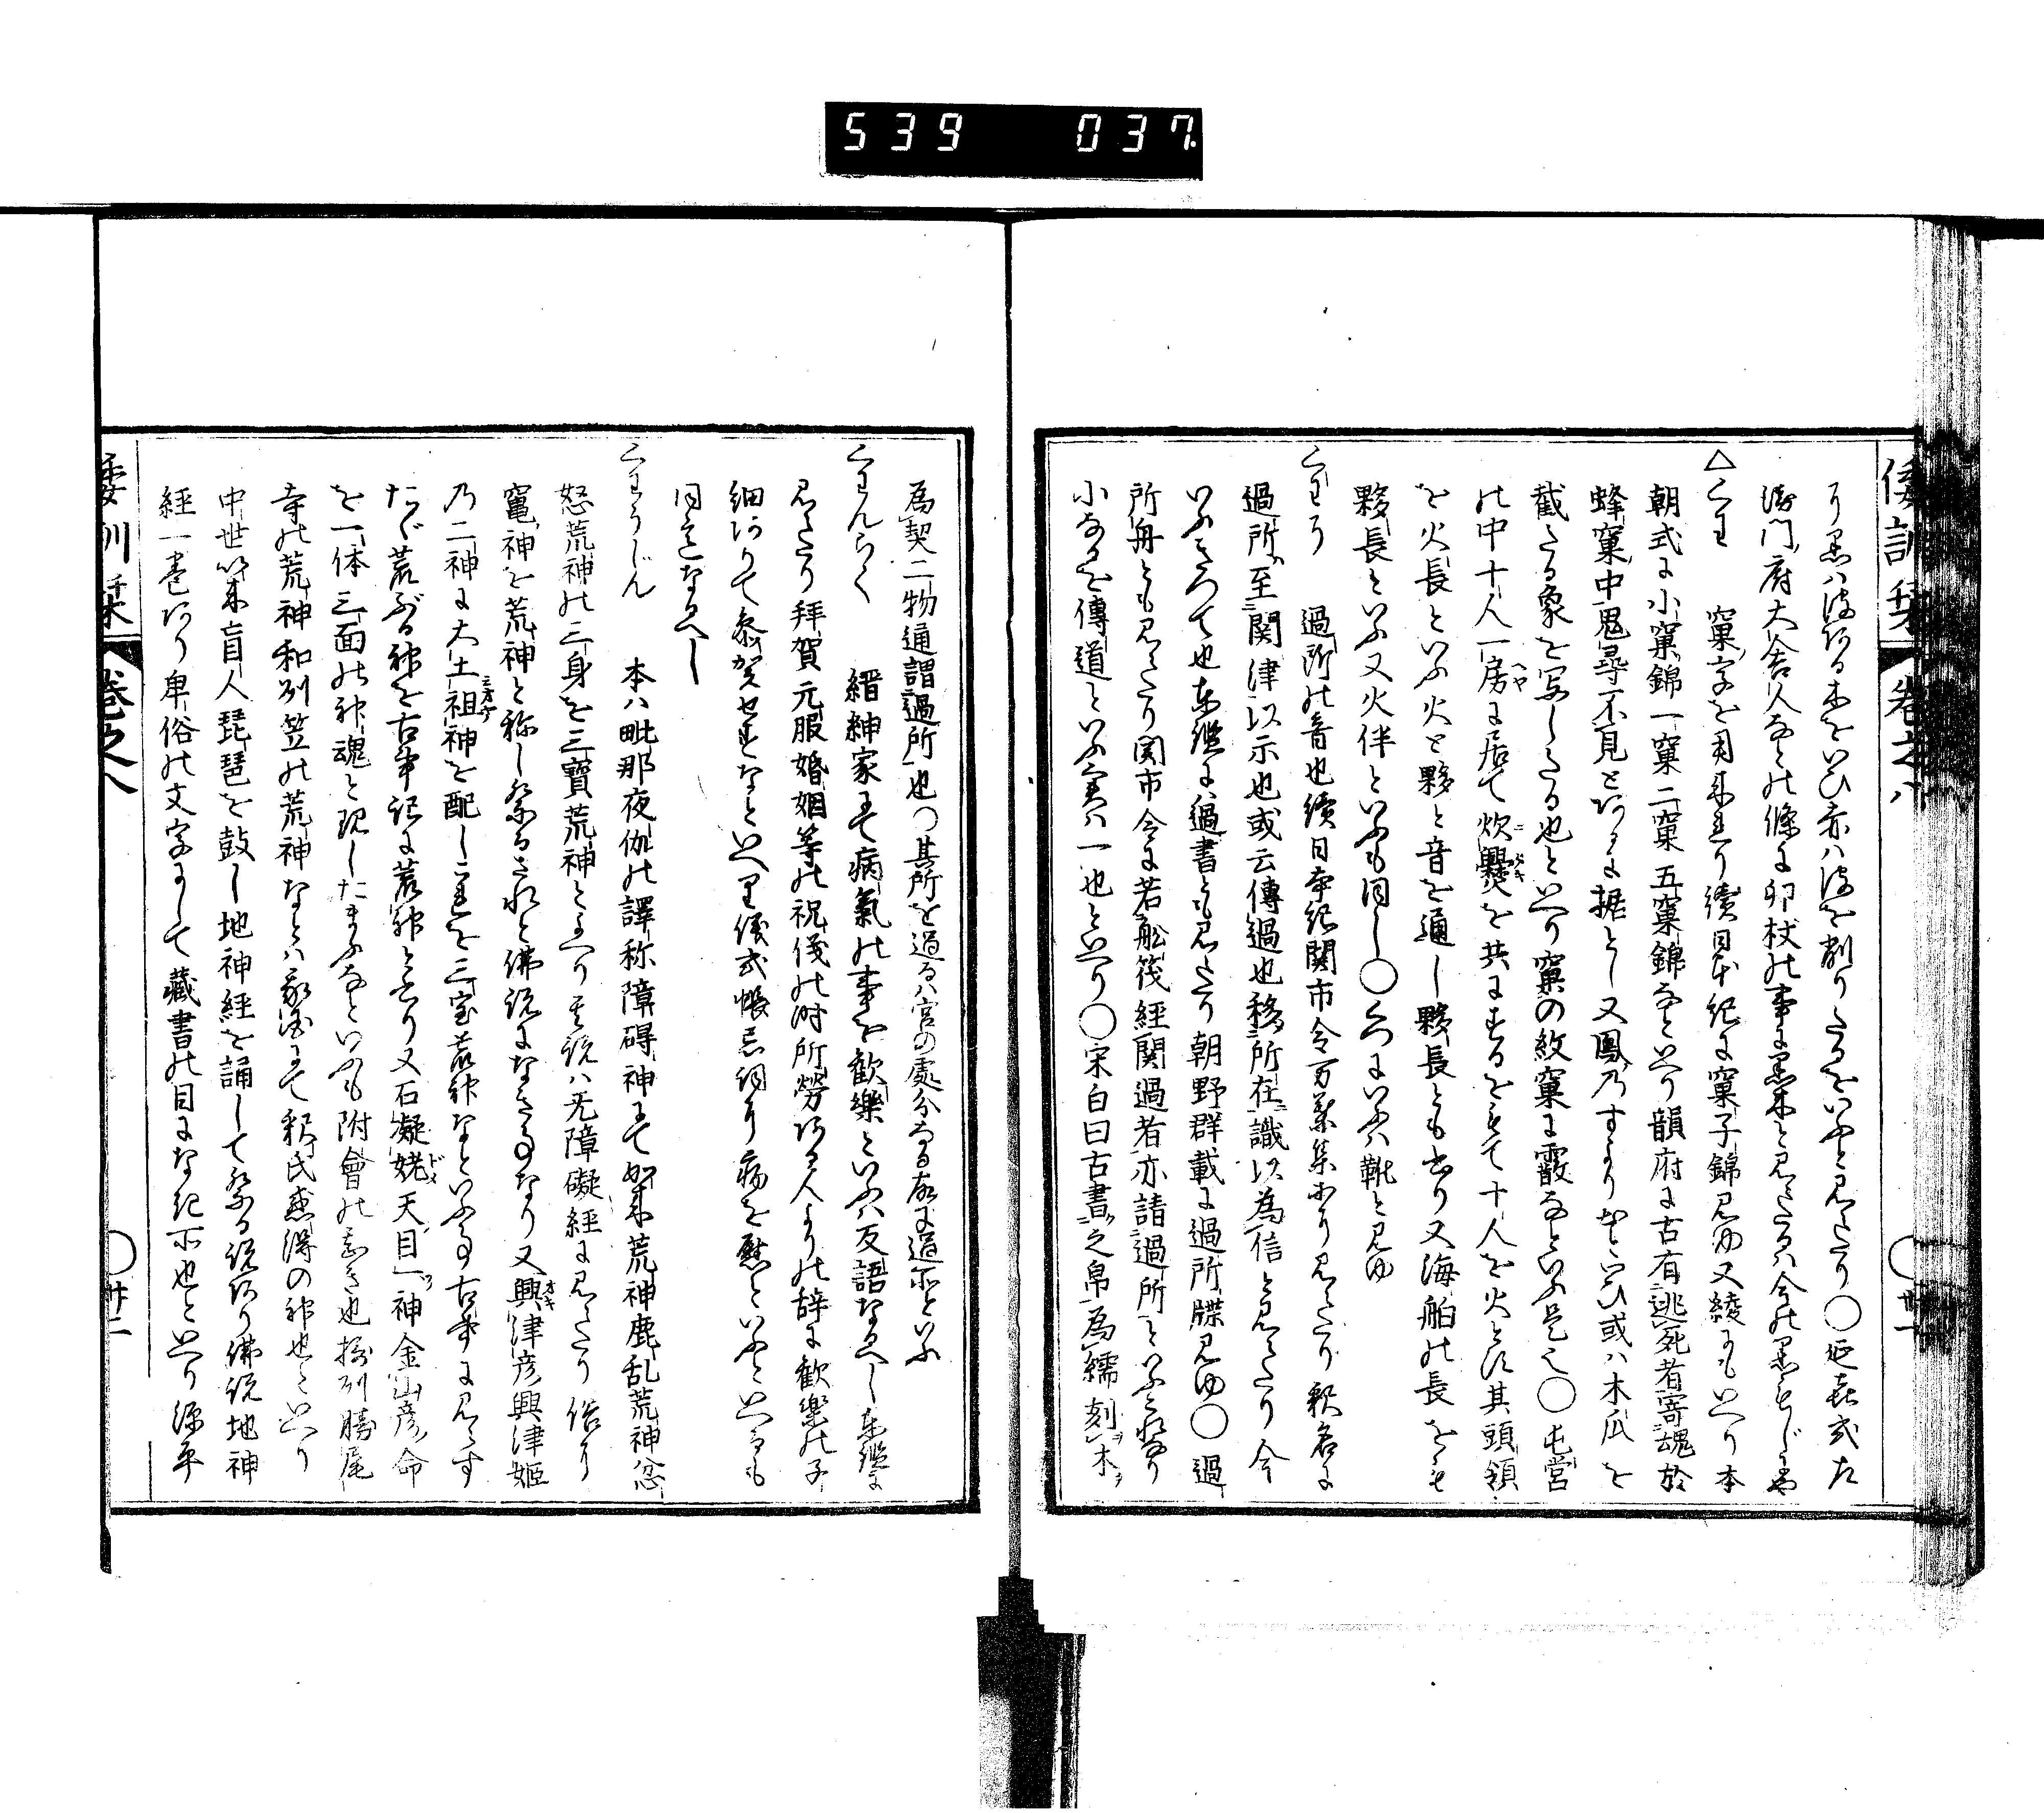 539 037
倭訓栞 卷之八 〇 廿一
り黒ハ皮ある木をいひ赤ハ皮を削りたるをいふと見えたり〇延喜式左
衛門府大舎人などの條に卯杖の事に黒木と見えたるハ今の黒もじ也
△くわ 窠字を用来れり續日本紀に窠子錦見ゆ又綾にもいへり本
朝式に小窠錦一窠二窠五窠錦などいへり韻府に古有逃死者寄魂於
蜂窠中鬼尋不見とあるに據とし又鳳乃すよりおこひ或ハ木瓜を
截たる象を写したる也といへり窠の紋窠に霰などいふ是也〇屯営
の中十人一房に居て炊爨を共にするをもて十人を火とす其頭領
を火長といふ火と夥と音を通し夥長とも書り又海舶の長をも
夥長といふ又火伴といふも同し〇くつにいふハ靴と見ゆ
くわそ 過所の音也續日本紀関市令万葉集に見えたり釈名に
過所至関津以示也或云傳過也移所在識以為信と見えたり今
いふきつて也東鑑に過書とも見えたり朝野群載に過所牒見ゆ〇過
所舟とも見えたり関市令に若舩筏経関過者亦請過所といふこれ也
小なるを傳道といふ実ハ一也といへり〇宋白曰古書之帛為繻刻木
為契二物通謂過所也〇其所を過るハ官の處分なる故に過所といふ
くわんらく 縉紳家にて病氣の事を歡樂といふハ反語なるへし東鑑に
見えたり拜賀元服婚姻等の祝儀の時所勞ある人よりの辞に歡樂の子
細ありて参賀せすなといへり儀式帳忌詞に病を慰といふといへるも
同意なるへし
くわうじん 本ハ毗那夜伽の譯称障碍神にて如来荒神鹿乱荒神忿
怒荒神の三身を三寶荒神といへり其説ハ无障礙経に見えたり俗に
竃神を荒神と称し祭るされと佛説になき事なり又興津彦興津姫
乃二神に大土祖神を配しこれを三宝荒神なといふ事古書に見えす
たゞ荒ぶる神を古事記に荒神と書り又石凝姥天目一神金山彦命
を一体三面の神魂と現したまふなといへるも附會の説也摂州勝尾
寺の荒神和州笠の荒神なとハ役氏感得の神也といへり
中世以来盲人琵琶を鼓し地神経を誦して祭る説あり佛説地神
経一巻あり卑俗の文字にして藏書の目になき所也といへり源平
倭訓栞 卷之八 〇 廿二